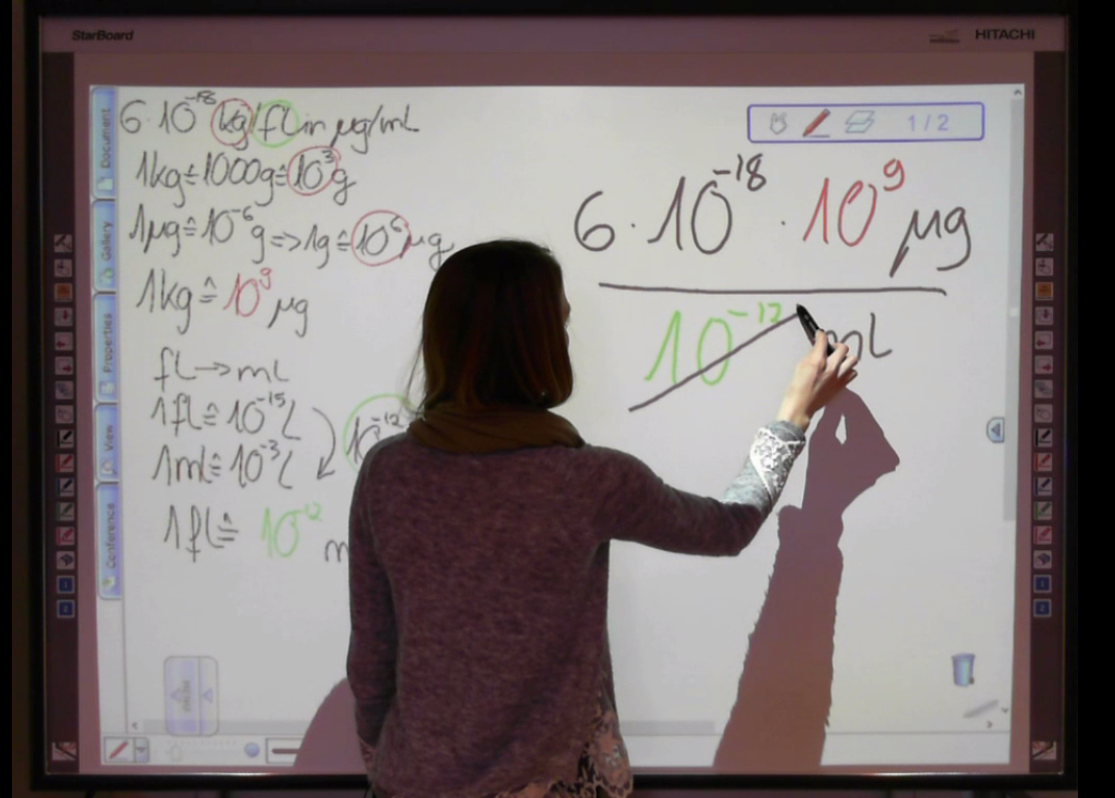 StarBoard
HITACHI
Document
Gallery
Properties
View
Conference
1/2
6·10⁻¹⁸ kg/fl in µg/ml
1kg≙1000g≙10³g
1µg≙10⁻⁶g=>1g≙10⁶µg
1kg≙10⁹ µg
fl→ml
1fl≙10⁻¹⁵l
1ml≙10⁻³l
10⁻¹²
1fl≙ 10
6·10⁻¹⁸·10⁹ µg
10⁻¹² ml